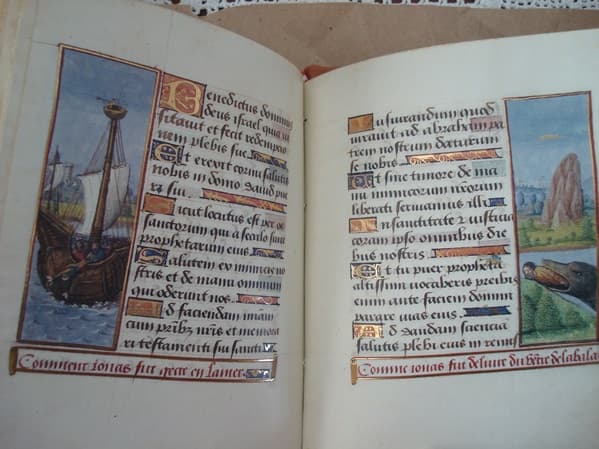 Benedictus dominus
deus israel quia ui
sitauit et fecit redemptio
nem plebis sue
Et erexit cornu salutis
nobis in domo dauid pue
ri sui
Sicut locutus est per os
sanctorum qui a seculo sunt
prophetarum eius
Salutem ex inimicis no
stris et de manu omnium
qui oderunt nos
Ad faciendam miseri
cum pribꝫ nr̃is et memora
ri testamenti sui sancti
Comment ionas fut gecte en la mer
Iusiurandum quod
iurauit ad abraham pa
trem nostrum daturum
se nobis
Ut sine timore de ma
nu inimicorum nrorum
liberati seruiamus illi
In sanctitate ⁊ iusticia
coram ipso omnibus die
bus nostris
Et tu puer propheta
altissimi uocaberis preibis
enim ante faciem domini
parare uias eius
Ad dandam sciencia
salutis plebi eius in remis
Comme ionas fut deliure du de la bala